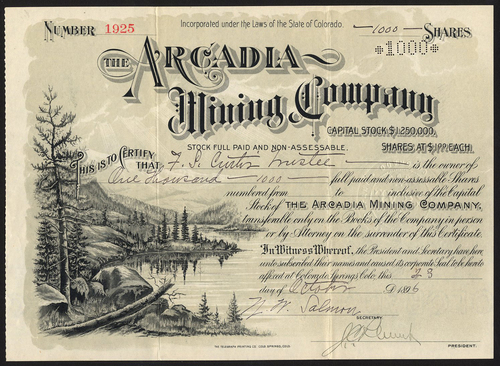 NUMBER 1925
Incorporated under the Laws of the State of Colorado.
1000 SHARES
*1000*
THE ARCADIA
Mining Company
CAPITAL STOCK $1,250,000.
STOCK FULL PAID AND NON-ASSESSABLE.
SHARES AT $1.00 EACH.
THIS IS TO CERTIFY THAT F. S. Curtis trustee is the owner of
One Thousand 1000 full paid and non-assessable Shares
numbered from to inclusive of the Capital
Stock of THE ARCADIA MINING COMPANY,
transferable only on the Books of the Company in person
or by Attorney on the surrender of this Certificate.
In Witness Whereof, the President and Secretary have here
unto subscribed their names and caused its corporate Seal to be hereto
affixed at Colorado Springs, Colo., this 23
day of October 1896
Salmon
SECRETARY.
PRESIDENT.
THE TELEGRAPH PRINTING CO. COLO SPRINGS, COLO.